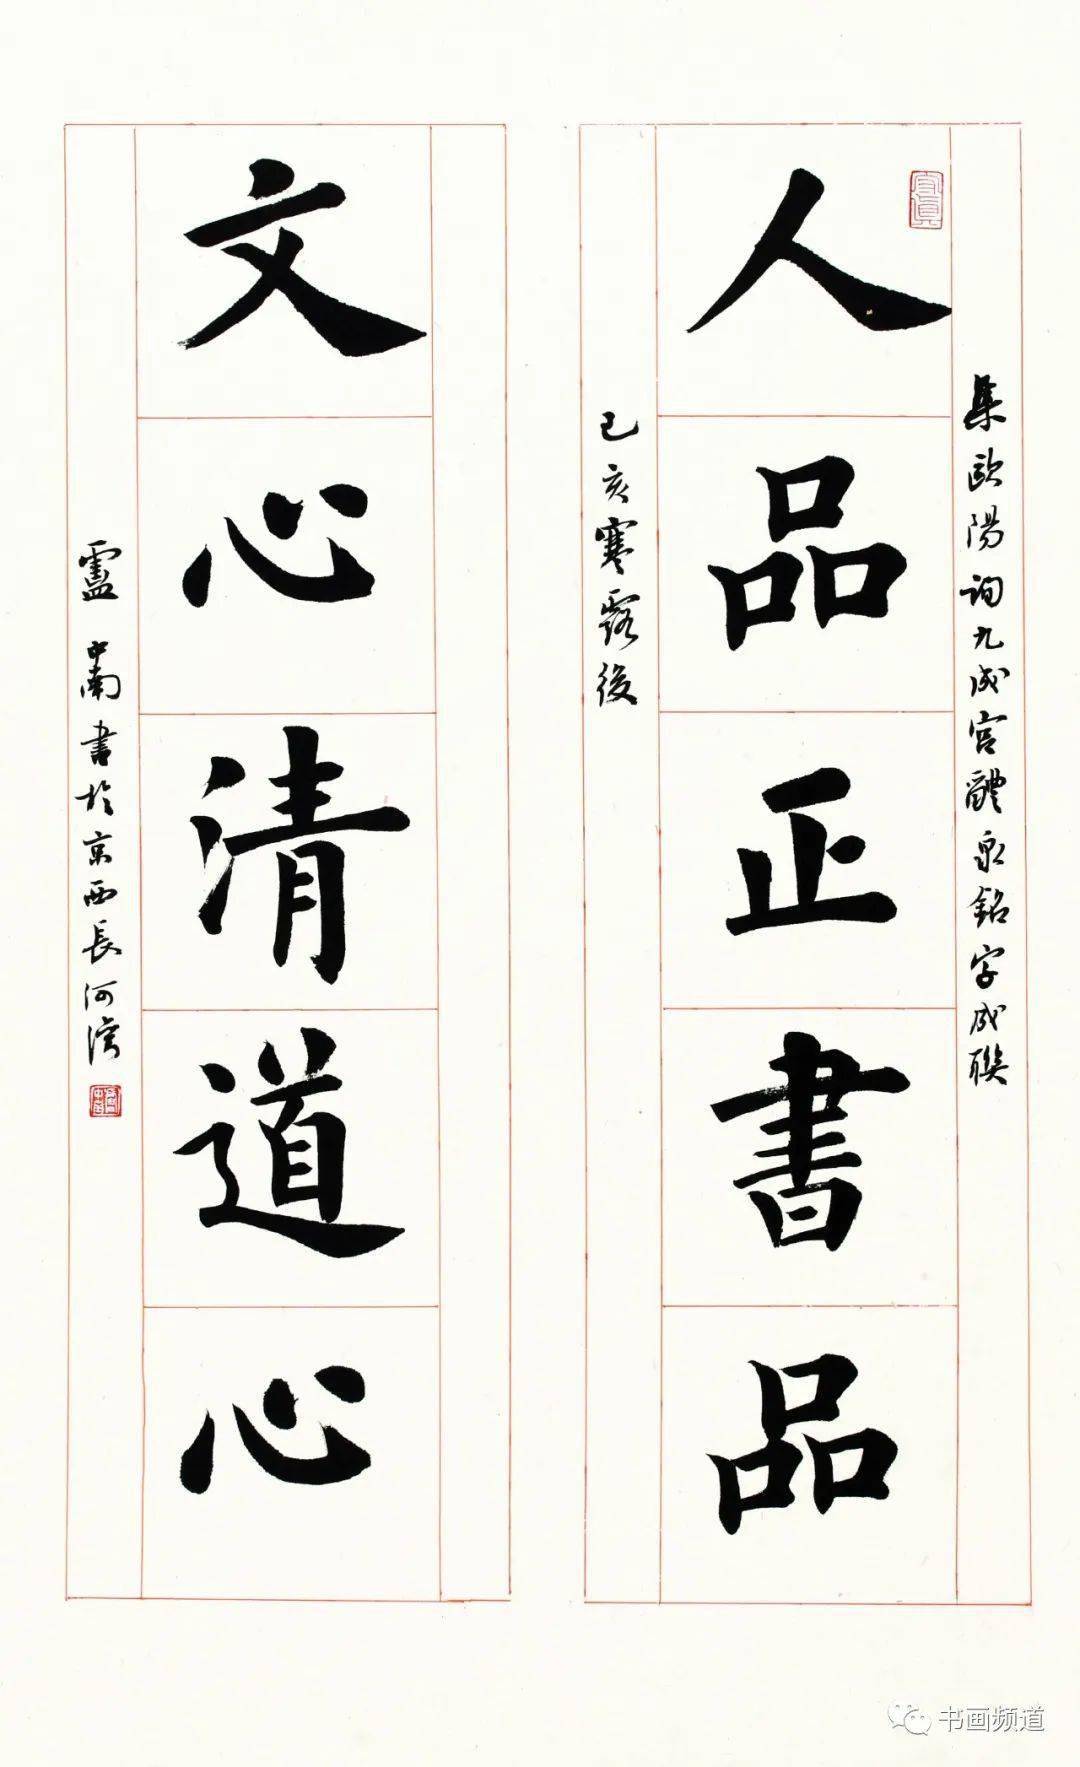 集歐陽詢九成宮醴泉銘字成聯
人品正書品
己亥寒露後
文心清道心
盧中南書於京西長河灣
书画频道